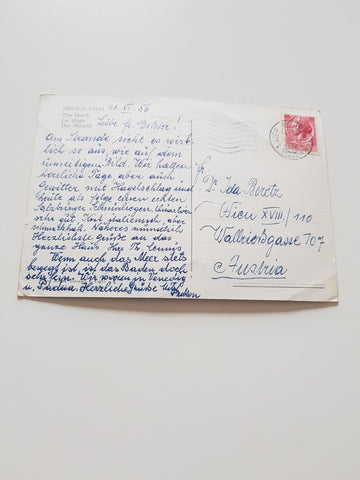 JESOLO LIDO
The beach
La plage
Der Strand
21. VI. 56
Liebe Fr. Doktor!
Am Strande sieht es wirk-
lich so aus, wie auf dem
umseitigen Bild. Wir hatten
herrliche Tage aber auch
Gewitter mit Hagelschlag und
heute als Folge einen echten
Salzburger Schnürlregen. Quartier
sehr gut, Kost italienisch aber
schmackhaft. Näheres mündlich
Herzlichste Grüße an das
ganze Haus Ihre Th.
Wenn auch das Meer stets
bewegt ist, ist das Baden doch
sehr fein. Wir waren in Venedig
u. Padua. Herzliche Grüße
Fr.
Dr. Ida Beretz
Wien XVIII/110
Wallrißgasse 707
Austria